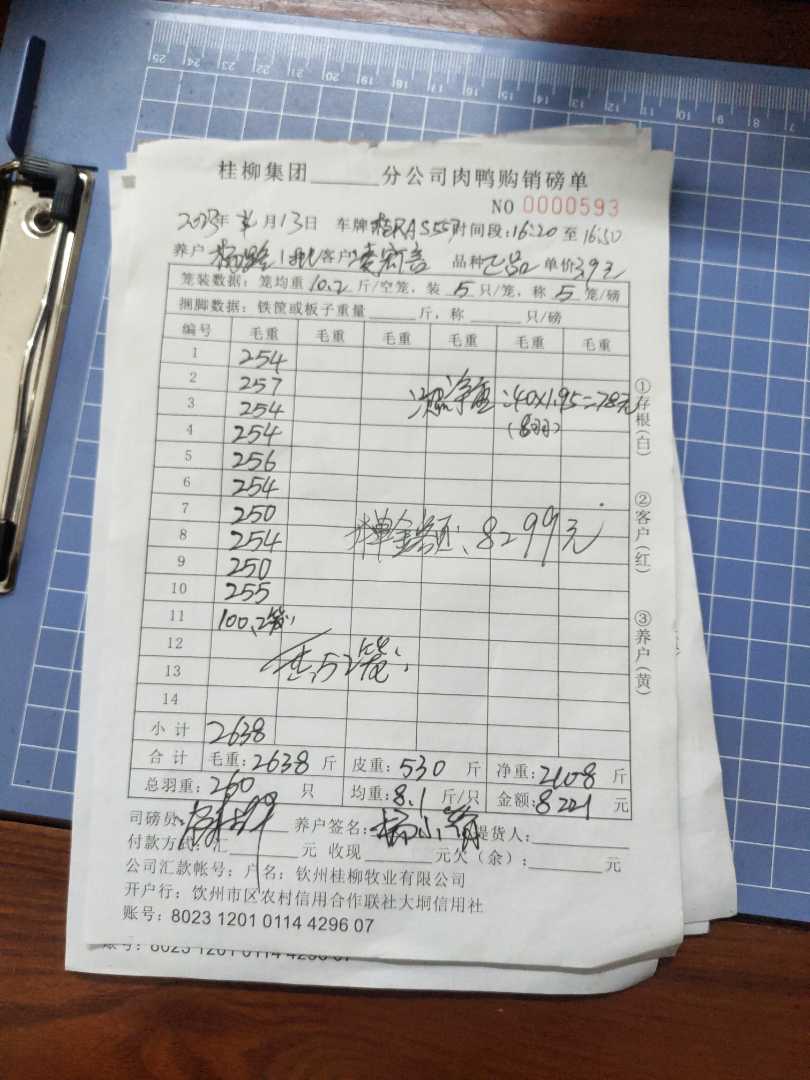 桂柳集团______分公司肉鸭购销磅单
NO 0000593
2023年 月13日 车牌 RA5557 时间段:16:20至16:50
养户 客户 品种 单价3.9元
笼装数据:笼均重10.2斤/空笼,装5只/笼,称5笼/磅
捆脚数据:铁筐或板子重量______斤,称______只/磅
编号 毛重 毛重 毛重 毛重 毛重 毛重
1 254
2 257
3 254
净重:40×1.95=78元
4 254
(8羽)
5 256
6 254
7 250
8 254
单金额:8299元
9 250
10 255
11 100.2笼
12
共52笼
13
14
小计 2638
合计 毛重:2638斤 皮重:530斤 净重:2108斤
总羽重:260只 均重:8.1斤/只 金额:8221元
司磅员: 养户签名: 提货人:
付款方式:汇______元 收现______元欠(余):______元
公司汇款帐号:户名:钦州桂柳牧业有限公司
开户行:钦州市区农村信用合作联社大垌信用社
账号:8023 1201 0114 4296 07
①存根(白)
②客户(红)
③养户(黄)
账号:8023 1201 0114 4296 07
25 24 23 22 21 20 19 18 17 16 15 14 13 12 11 10 9 8 7